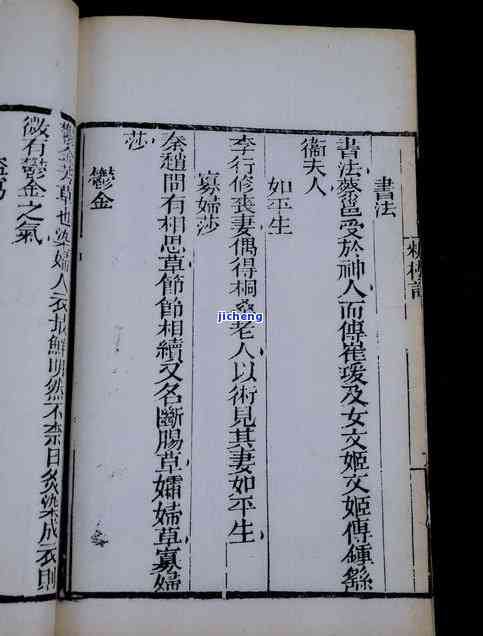 書法
書法蔡邕受於神人而傳崔瑗及女文姬文姬傳鍾繇
衞夫人
如平生
李行修喪妻偶得桐桑老人以術見其妻如平生
寡婦莎
秦趙間有相思草節節相續又名斷腸草孀婦草寡婦
莎
鬱金
鬱金芳草也染婦人衣最鮮明然不柰日炙染成衣則
微有鬱金之氣
jicheng